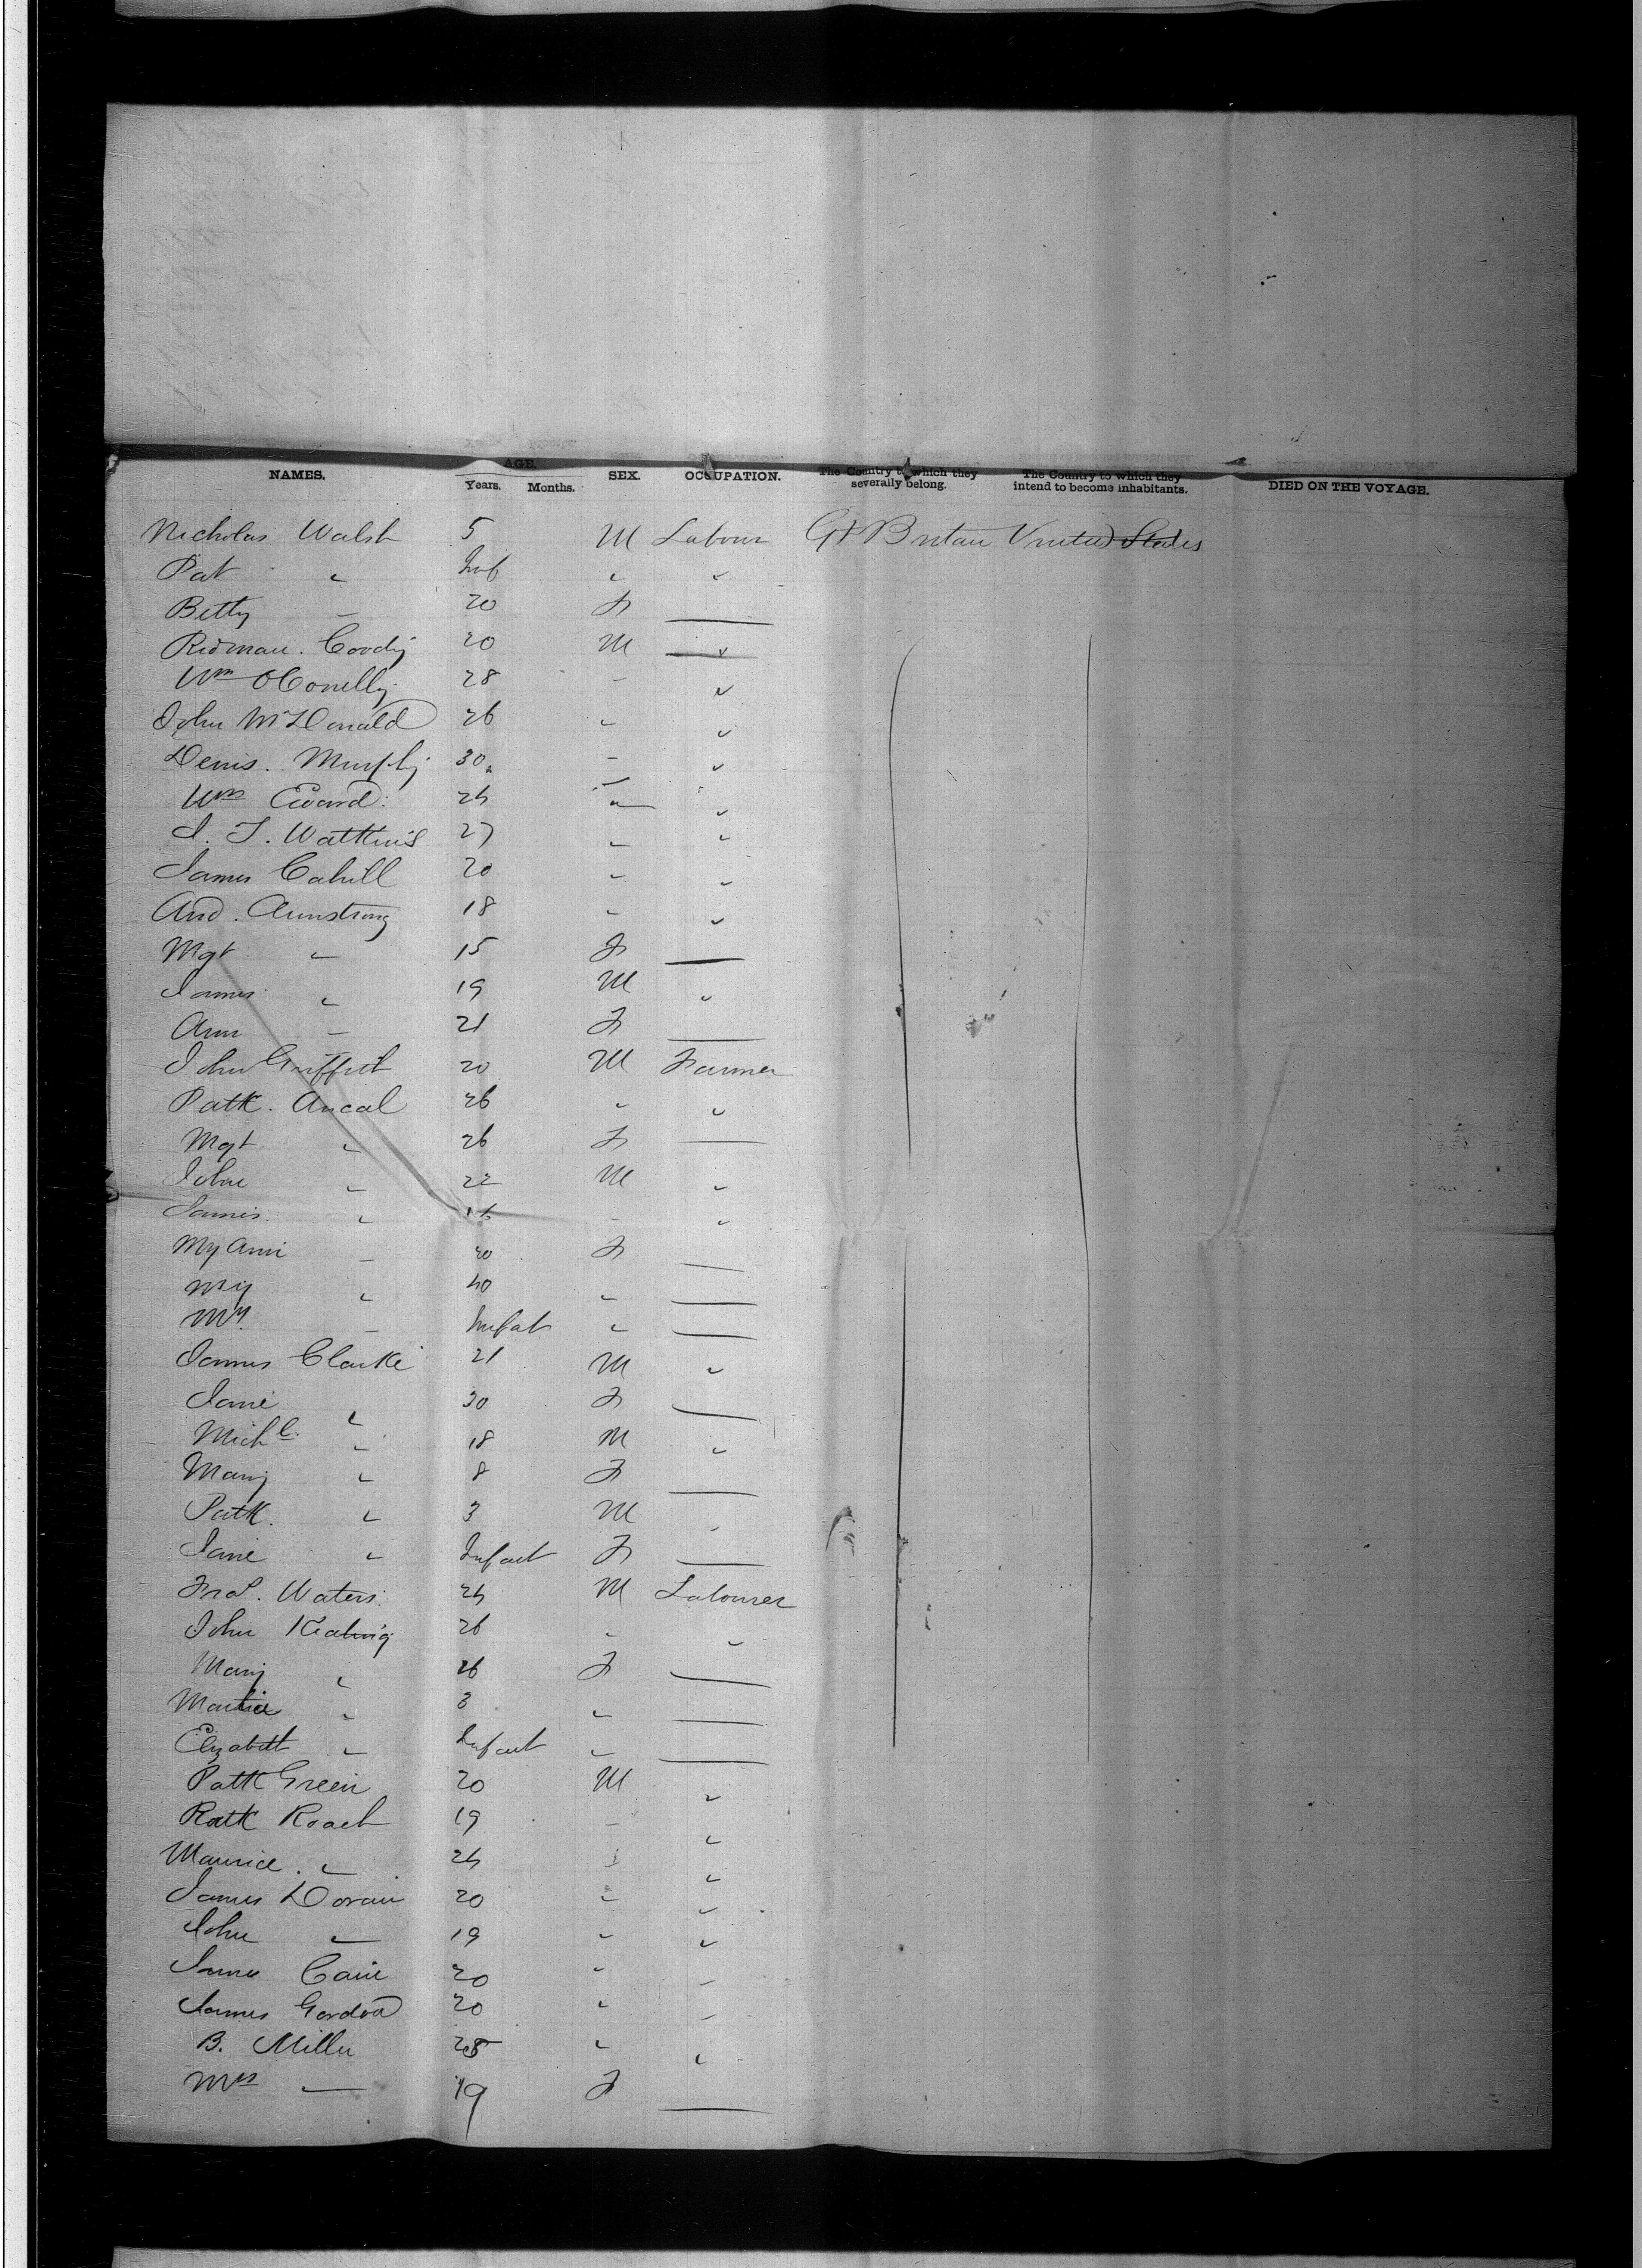 NAMES. AGE. Years. Months. SEX. OCCUPATION. The Country to which they severally belong. The Country to which they intend to become inhabitants. DIED ON THE VOYAGE.
Nicholas Walsh 5 M Labour Gt Britain United States
Pat " Inf " "
Betty " 20 F —
20 M "
Wm OConelly 28 " "
John McDonald 26 " "
Denis. Murphy 30 " "
Wm 24 " "
J. T. Watkins 27 " "
James Cahill 20 " "
And. Armstrong 18 " "
Mgt " 15 F —
James " 19 M "
Ann " 21 F —
John Griffith 20 M Farmer
Patk. 26 " "
Mgt " 26 F —
John " 22 M "
James " " "
My Ann " 20 F —
My " 40 " —
My " Infat " —
James Clarke 21 M "
Jane " 30 F —
Michl. " 18 M "
Mary " 8 F —
Patk. " 3 M "
Jane " Infant F —
Waters 24 M Labourer
John Keating 26 " "
Mary " 26 F —
" 3 " —
Elizabeth " Infant " —
Patk Green 20 M "
Patk Roach 19 " "
Maurice " 24 " "
James Doran 20 " "
John " 19 " "
James Cain 20 " "
James Gordon 20 " "
B. Miller 28 " "
Mrs — 19 F —